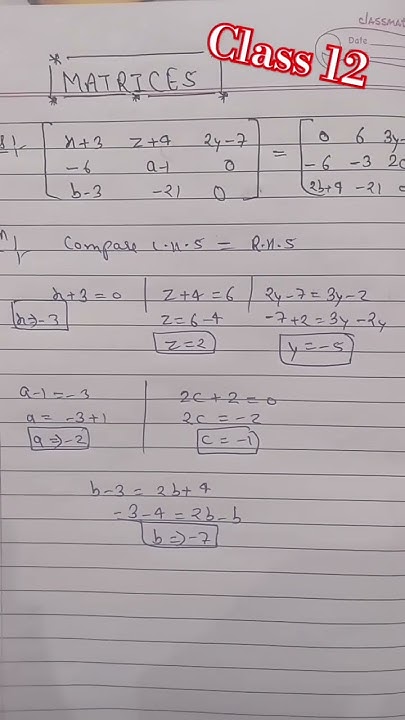 CLASSMA
Date
Class 12
MATRICES
[x+3 z+4 2y-7] = [0 6 3y-
[-6 a-1 0] [-6 -3 2c
[b-3 -21 0] [2b+4 -21 0
Compare L.H.S = R.H.S
x+3=0 | z+4=6 | 2y-7=3y-2
x⇒-3 | z=6-4 | -7+2=3y-2y
z=2 | y=-5
a-1=-3 | 2c+2=0
a= -3+1 | 2c=-2
a⇒-2 | c=-1
b-3= 2b+4
-3-4=2b-b
b⇒-7